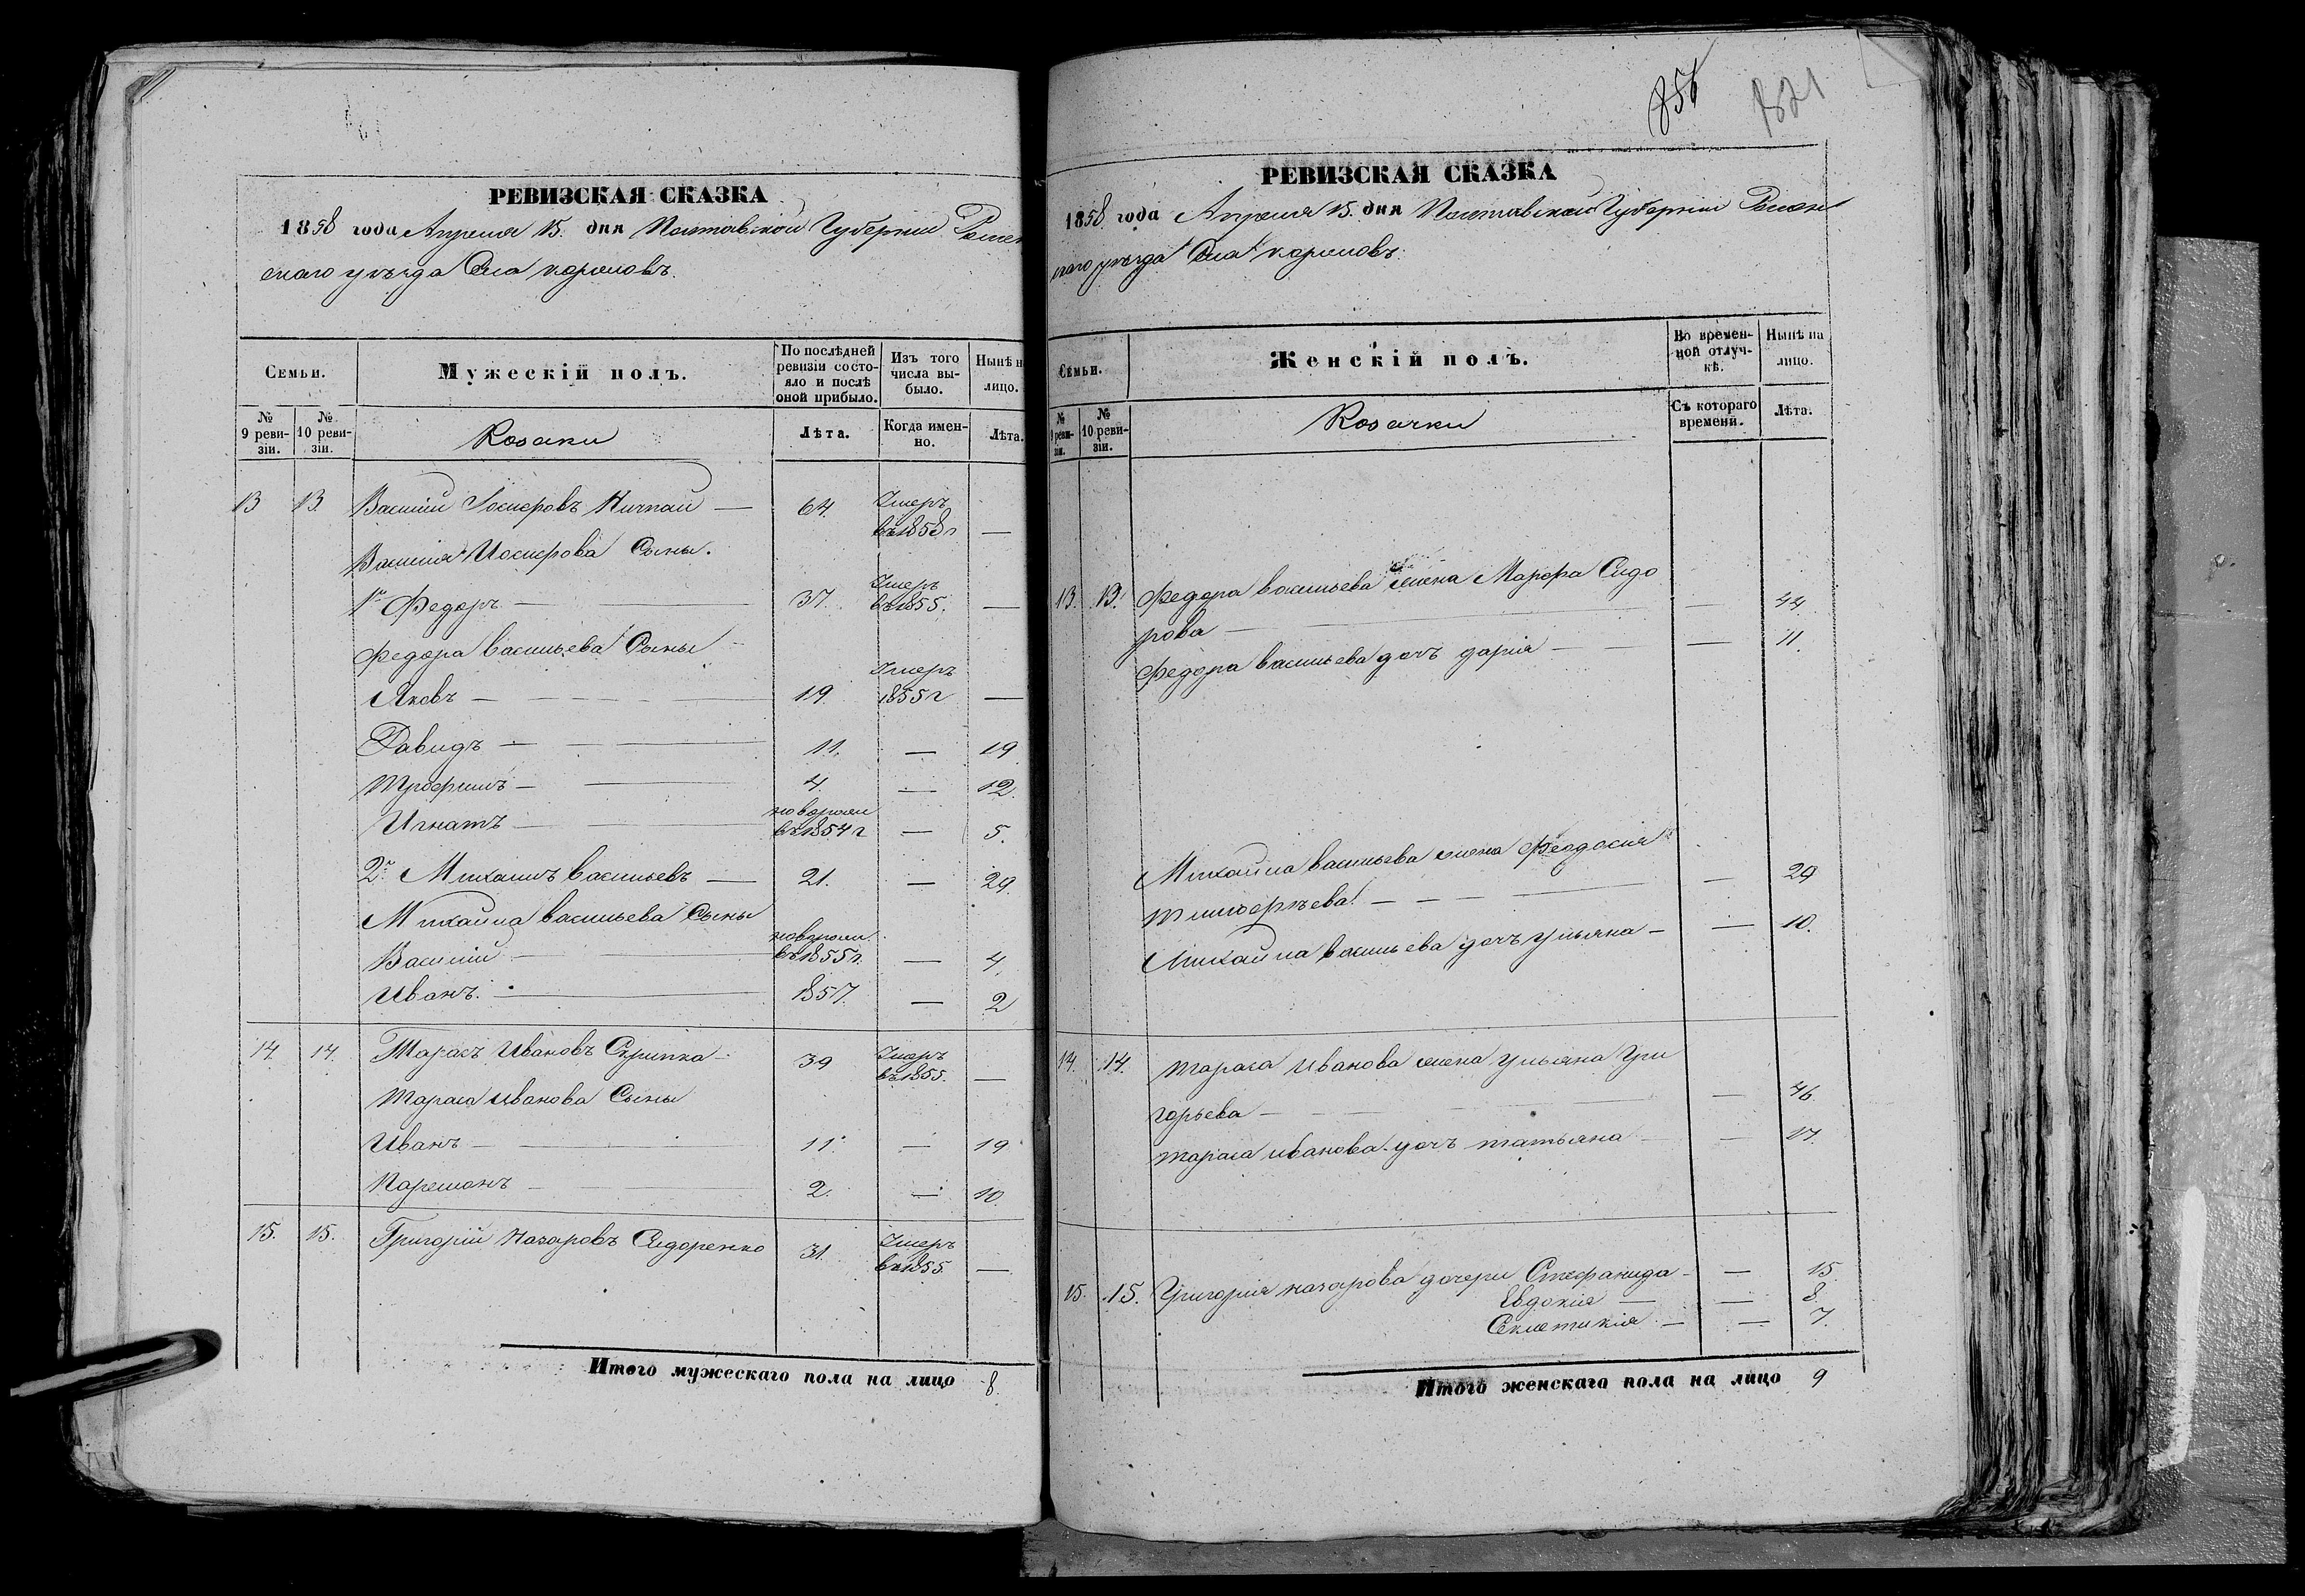 РЕВИЗСКАЯ СКАЗКА
1858 года Апреля 15. дня Полтавской Губернiи Ромен
скаго уѣзда Села
Семьи.
Мужескiй полъ.
По послѣдней ревизiи состояло и послѣ оной прибыло.
Изъ того числа выбыло.
Нынѣ на лицо.
№ 9 ревизiи.
№ 10 ревизiи.
Козаки
Лѣта.
Когда именно.
Лѣта.
13 13. Василiй Іосифовъ Ничпай — 64. Умеръ въ 1858 г —
Василiя Иосифова Сыны.
1й Федоръ — 37. Умеръ въ 1855. —
Федора Васильева Сыны
Яковъ — 19. Умеръ 1855 г —
Давидъ — 11. — 19
Трофимъ — 4. — 12.
Игнатъ — новорожд въ 1854 г — 5.
2й Михаилъ Васильевъ — 21. — 29.
Михайла Васильева Сыны
Василiй — новорожд. въ 1855 г. — 4.
Иванъ. — 1857. — 2
14. 14. Тарасъ Ивановъ Скрипка — 39 Умеръ въ 1855. —
Тараса Иванова Сыны
Иванъ — 11. — 19
Парѳменъ — 2. — 10.
15. 15. Григорiй Назаровъ Сидоренко 31. Умеръ въ 1855. —
Итого мужескаго пола на лицо 8.
856
821
РЕВИЗСКАЯ СКАЗКА
1858. года Апреля 15. дня Полтавской Губернiи Ромен
скаго уѣзда Села
Семьи.
Женскiй полъ.
Во временной отлучкѣ.
Нынѣ на лицо.
№ 9 ревизiи.
№ 10 ревизiи.
Козачки
Съ котораго времени.
Лѣта.
13. 13. Федора Васильева жена Марфа Сидо
рова — — 44.
Федора Васильева дочь Дарiя — — 11.
Михайла Васильева жена Феодосiя
Тимофеѣева. — — 29
Михайла Васильева дочъ Ульяна — — 10.
14. 14. Тараса Иванова жена Ульяна Гри
горьева — — 46.
Тараса Иванова дочъ Татьяна — — 17.
15. 15. Григорiя Назарова дочери Стефанида — — 15.
Евдокiя — — 8.
Секлетикiя — — 7.
Итого женскаго пола на лицо 9